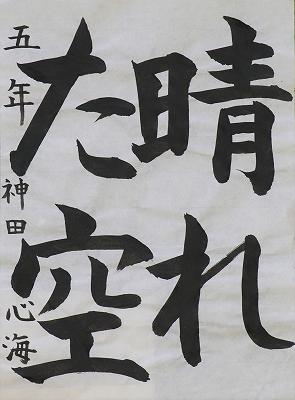 晴れ
た空
五年 神田 心海